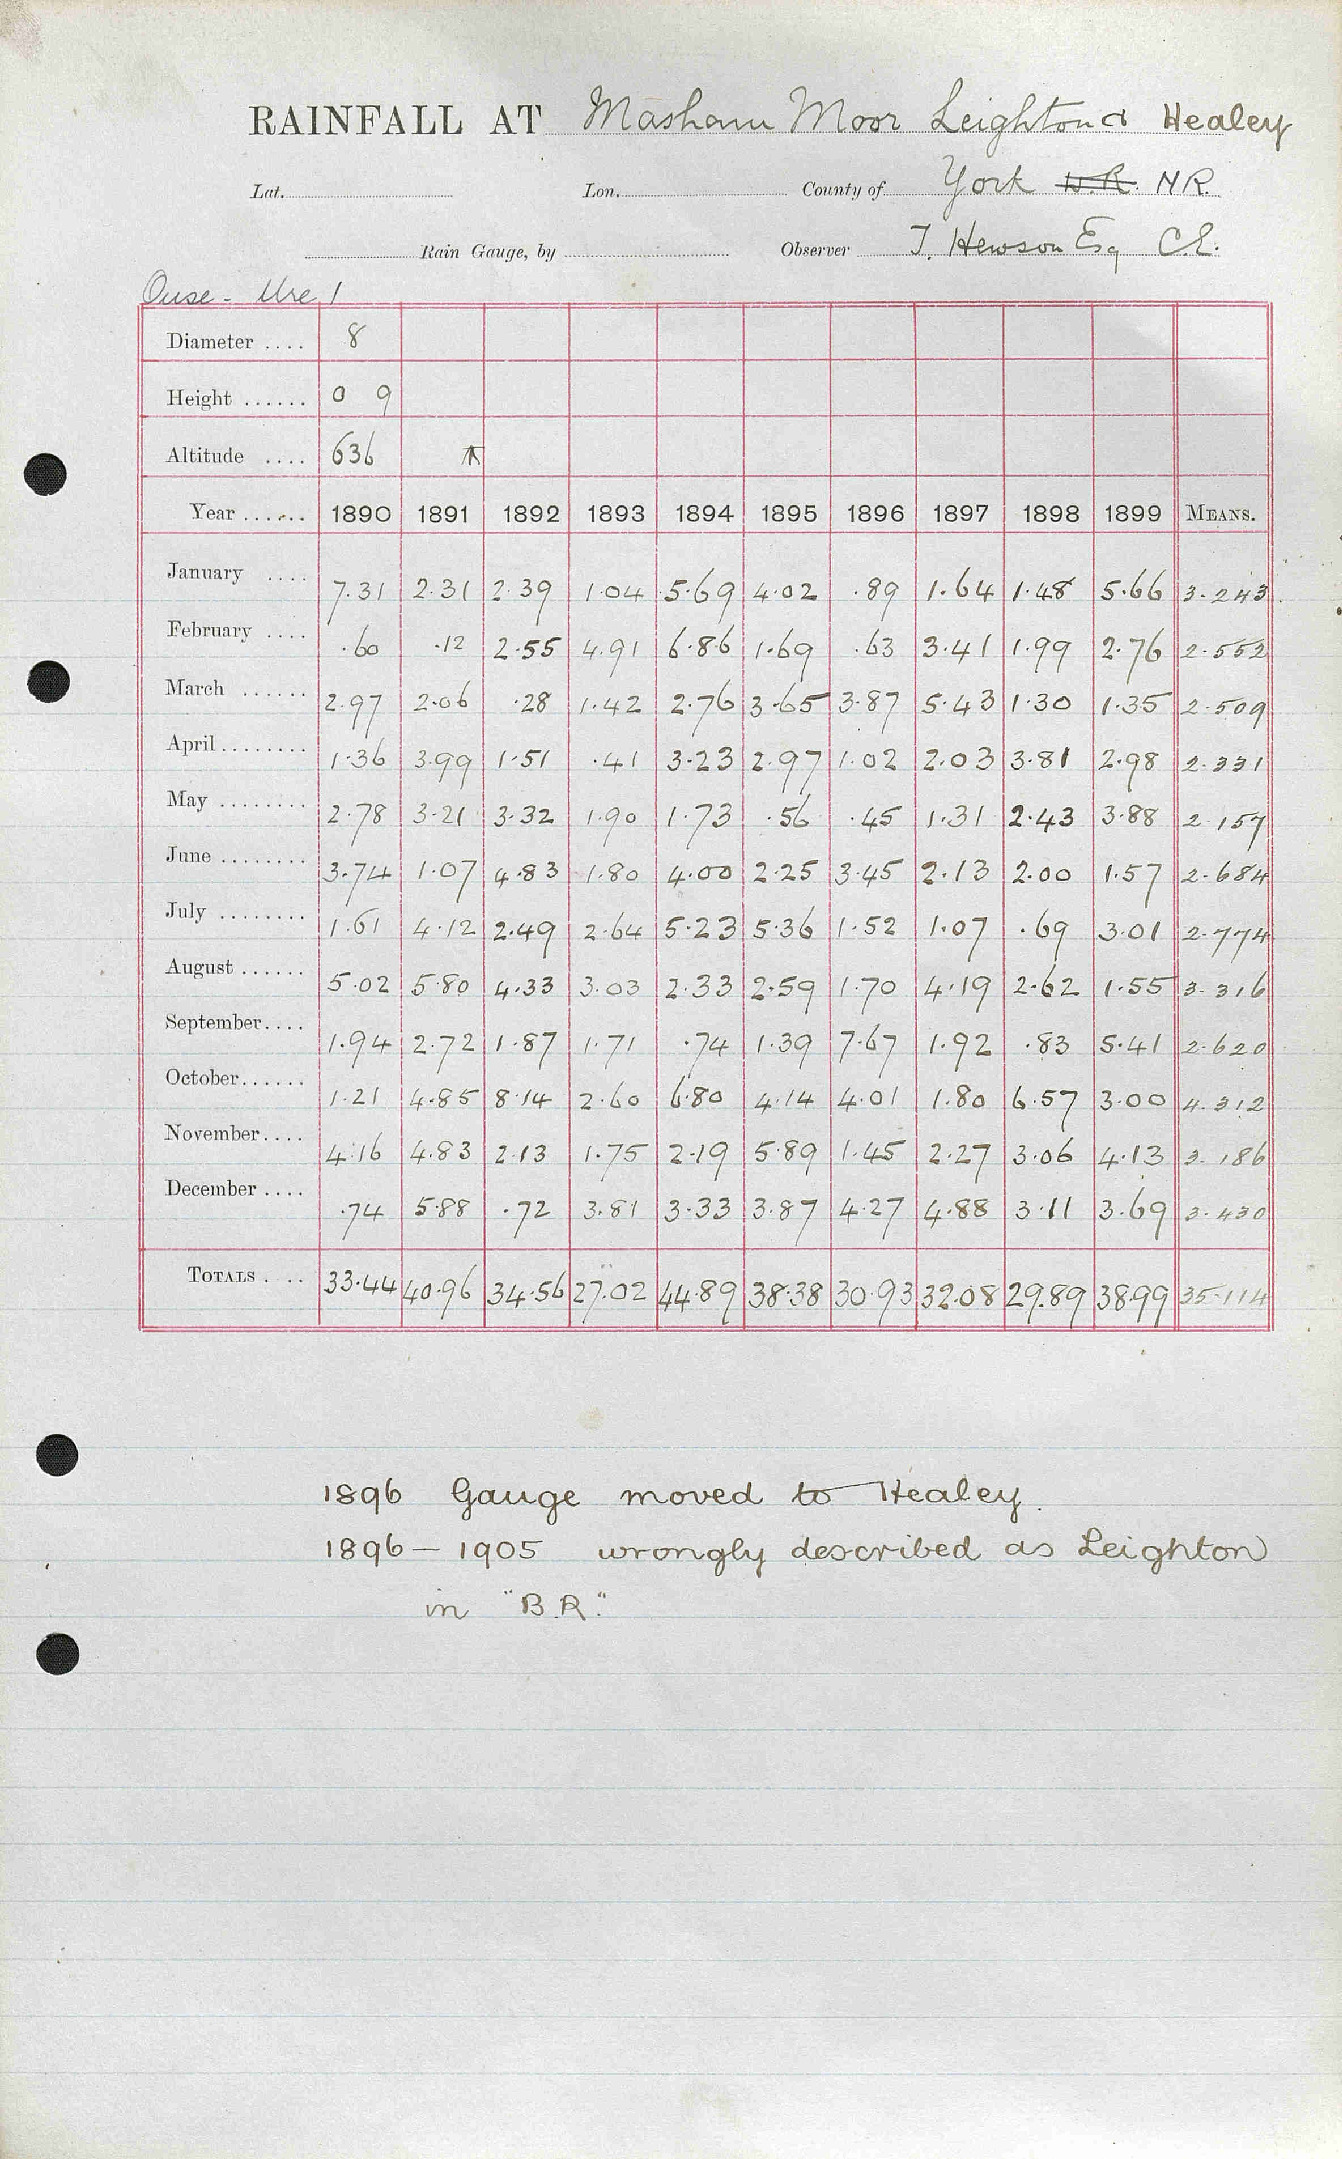 RAINFALL AT Masham Moor Leighton & Healey
Lat. Lon. County of York W.R. N.R.
Rain Gauge, by Observer T. Hewson Esq C.E.
Ouse - Ure 1
Diameter .... 8
Height ...... 0 9
Altitude .... 636
Year ...... 1890 1891 1892 1893 1894 1895 1896 1897 1898 1899 MEANS.
January .... 7.31 2.31 2.39 1.04 5.69 4.02 .89 1.64 1.48 5.66 3.243
February .... .60 .12 2.55 4.91 6.86 1.69 .63 3.41 1.99 2.76 2.552
March ...... 2.97 2.06 .28 1.42 2.76 3.65 3.87 5.43 1.30 1.35 2.509
April ........ 1.36 3.99 1.51 .41 3.23 2.97 1.02 2.03 3.81 2.98 2.331
May ........ 2.78 3.21 3.32 1.90 1.73 .56 .45 1.31 2.43 3.88 2.157
June ........ 3.74 1.07 4.83 1.80 4.00 2.25 3.45 2.13 2.00 1.57 2.684
July ........ 1.61 4.12 2.49 2.64 5.23 5.36 1.52 1.07 .69 3.01 2.774
August ...... 5.02 5.80 4.33 3.03 2.33 2.59 1.70 4.19 2.62 1.55 3.316
September .... 1.94 2.72 1.87 1.71 .74 1.39 7.67 1.92 .83 5.41 2.620
October ...... 1.21 4.85 8.14 2.60 6.80 4.14 4.01 1.80 6.57 3.00 4.312
November .... 4.16 4.83 2.13 1.75 2.19 5.89 1.45 2.27 3.06 4.13 3.186
December .... .74 5.88 .72 3.81 3.33 3.87 4.27 4.88 3.11 3.69 3.430
TOTALS .... 33.44 40.96 34.56 27.02 44.89 38.38 30.93 32.08 29.89 38.99 35.114
1896 Gauge moved to Healey.
1896 - 1905 wrongly described as Leighton
in "B.R."